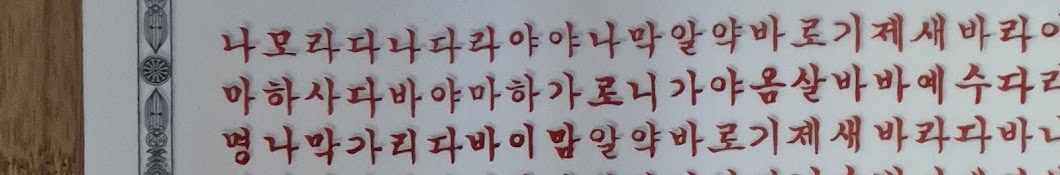 나모라다나다라야야나막알약바로기제새바라
마하사다바야마하가로니가야옴살바바예수다
명나막가리다바이맘알약바로기제새바라다바